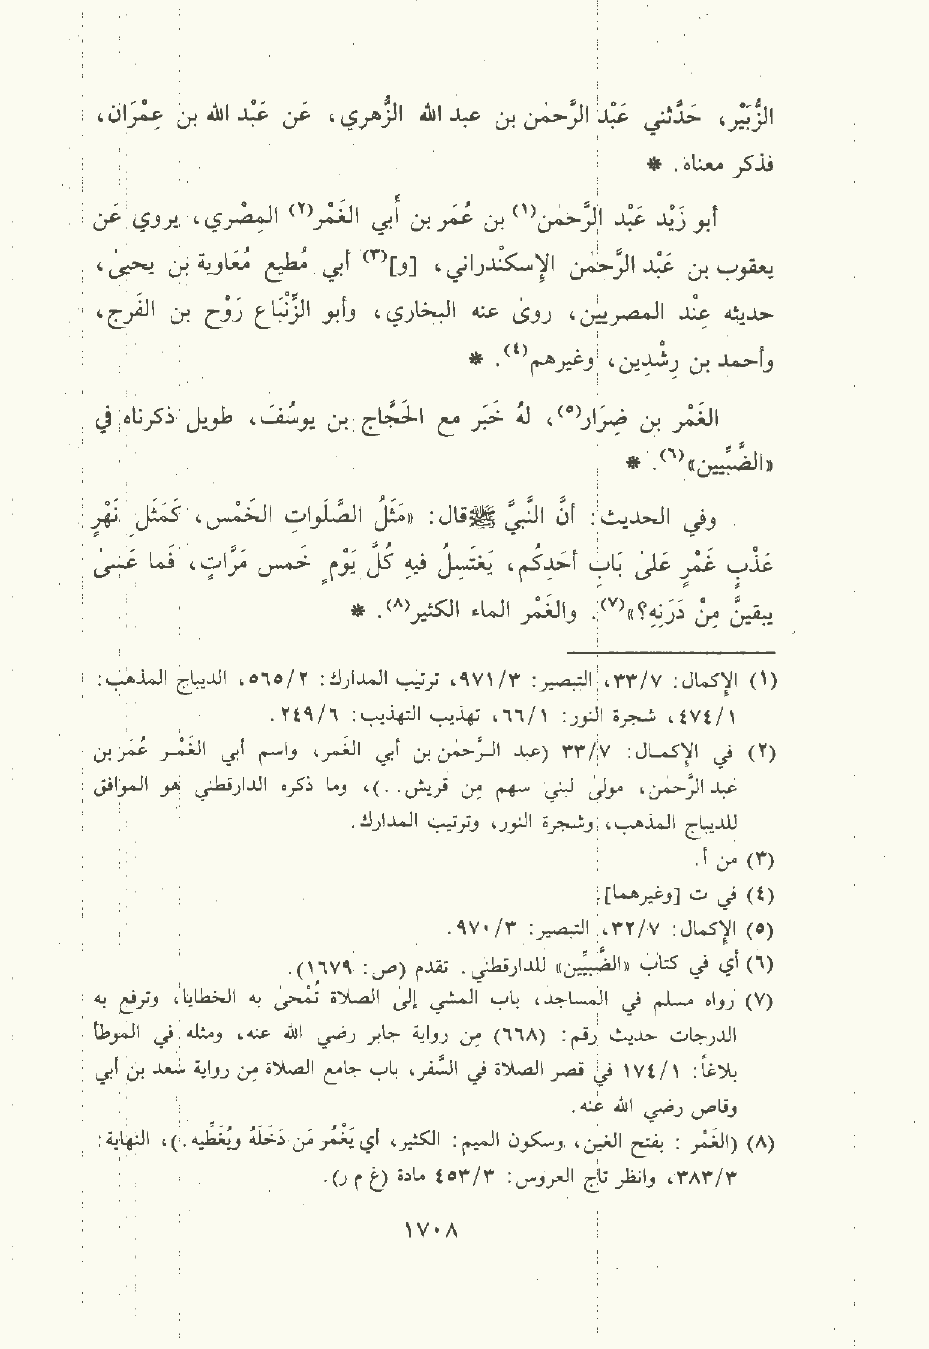 الزُّبَيْر، حَدَّثني عَبْد الرَّحمٰن بن عبد الله الزُّهري، عَن عَبْد الله بن عِمْرَان،
فذكر معناه. *
أبو زَيْد عَبْد الرَّحمٰن(١) بن عُمَر بن أبي الغَمْر(٢) المِصْري، يروي عَن
يعقوب بن عَبْد الرَّحمٰن الإسكندراني، [و](٣) أبي مُطيع مُعَاوية بن يحيىٰ،
حديثه عِنْد المصريين، روىٰ عنه البخاري، وأبو الزِّنْبَاع رَوْح بن الفَرج،
وأحمد بن رِشْدِين، وغيرهم(٤). *
الغَمْر بن ضِرَار(٥)، لهُ خَبَر مع الحَجَّاج بن يوسُفَ، طويل ذكرناه في
«الضَّبِّيين»(٦). *
وفي الحديث: أنَّ النَّبيَّ ﷺ قال: «مَثَلُ الصَّلَواتِ الخَمْس، كَمَثَلِ نَهْرٍ
عَذْبٍ غَمْرٍ عَلىٰ بَابِ أحَدِكُم، يَغتَسِلُ فيهِ كُلَّ يَوْمٍ خَمسَ مَرَّاتٍ، فَمَا عَسَىٰ
يبقينَّ مِنْ دَرَنِهِ؟»(٧). والغَمْر الماء الكثير(٨). *
(١) الإكمال: ٣٣/٧، التبصير: ٩٧١/٣، ترتيب المدارك: ٥٦٥/٢، الديباج المذهب:
٤٧٤/١، شجرة النور: ٦٦/١، تهذيب التهذيب: ٢٤٩/٦.
(٢) في الإكمال: ٣٣/٧ (عبد الرَّحمٰن بن أبي الغمر، واسم أبي الغَمْر عُمَر بن
عبد الرَّحمٰن، مولىٰ لبني سهم مِن قريش..)، وما ذكره الدارقطني هو الموافق
للديباج المذهب، وشجرة النور، وترتيب المدارك.
(٣) من أ.
(٤) في ت [وغيرهما].
(٥) الإكمال: ٣٢/٧، التبصير: ٩٧٠/٣.
(٦) أي في كتاب «الضَّبِّيين» للدارقطني. تقدم (ص: ١٦٧٩).
(٧) رواه مسلم في المساجد، باب المشي إلىٰ الصلاة تُمْحىٰ به الخطايا، وترفع به
الدرجات حديث رقم: (٦٦٨) مِن رواية جابر رضي الله عنه، ومثله في الموطأ
بلاغاً: ١٧٤/١ في قصر الصلاة في السَّفر، باب جامع الصلاة مِن رواية سَعد بن أبي
وقاص رضي الله عَنه.
(٨) (الغَمْر : بفتح الغين، وسكون الميم: الكثير، أي يَغْمُر مَن دَخَلَهُ ويُغَطِّيه.)، النهاية:
٣٨٣/٣، وانظر تاج العروس: ٤٥٣/٣ مادة (غ م ر).
١٧٠٨